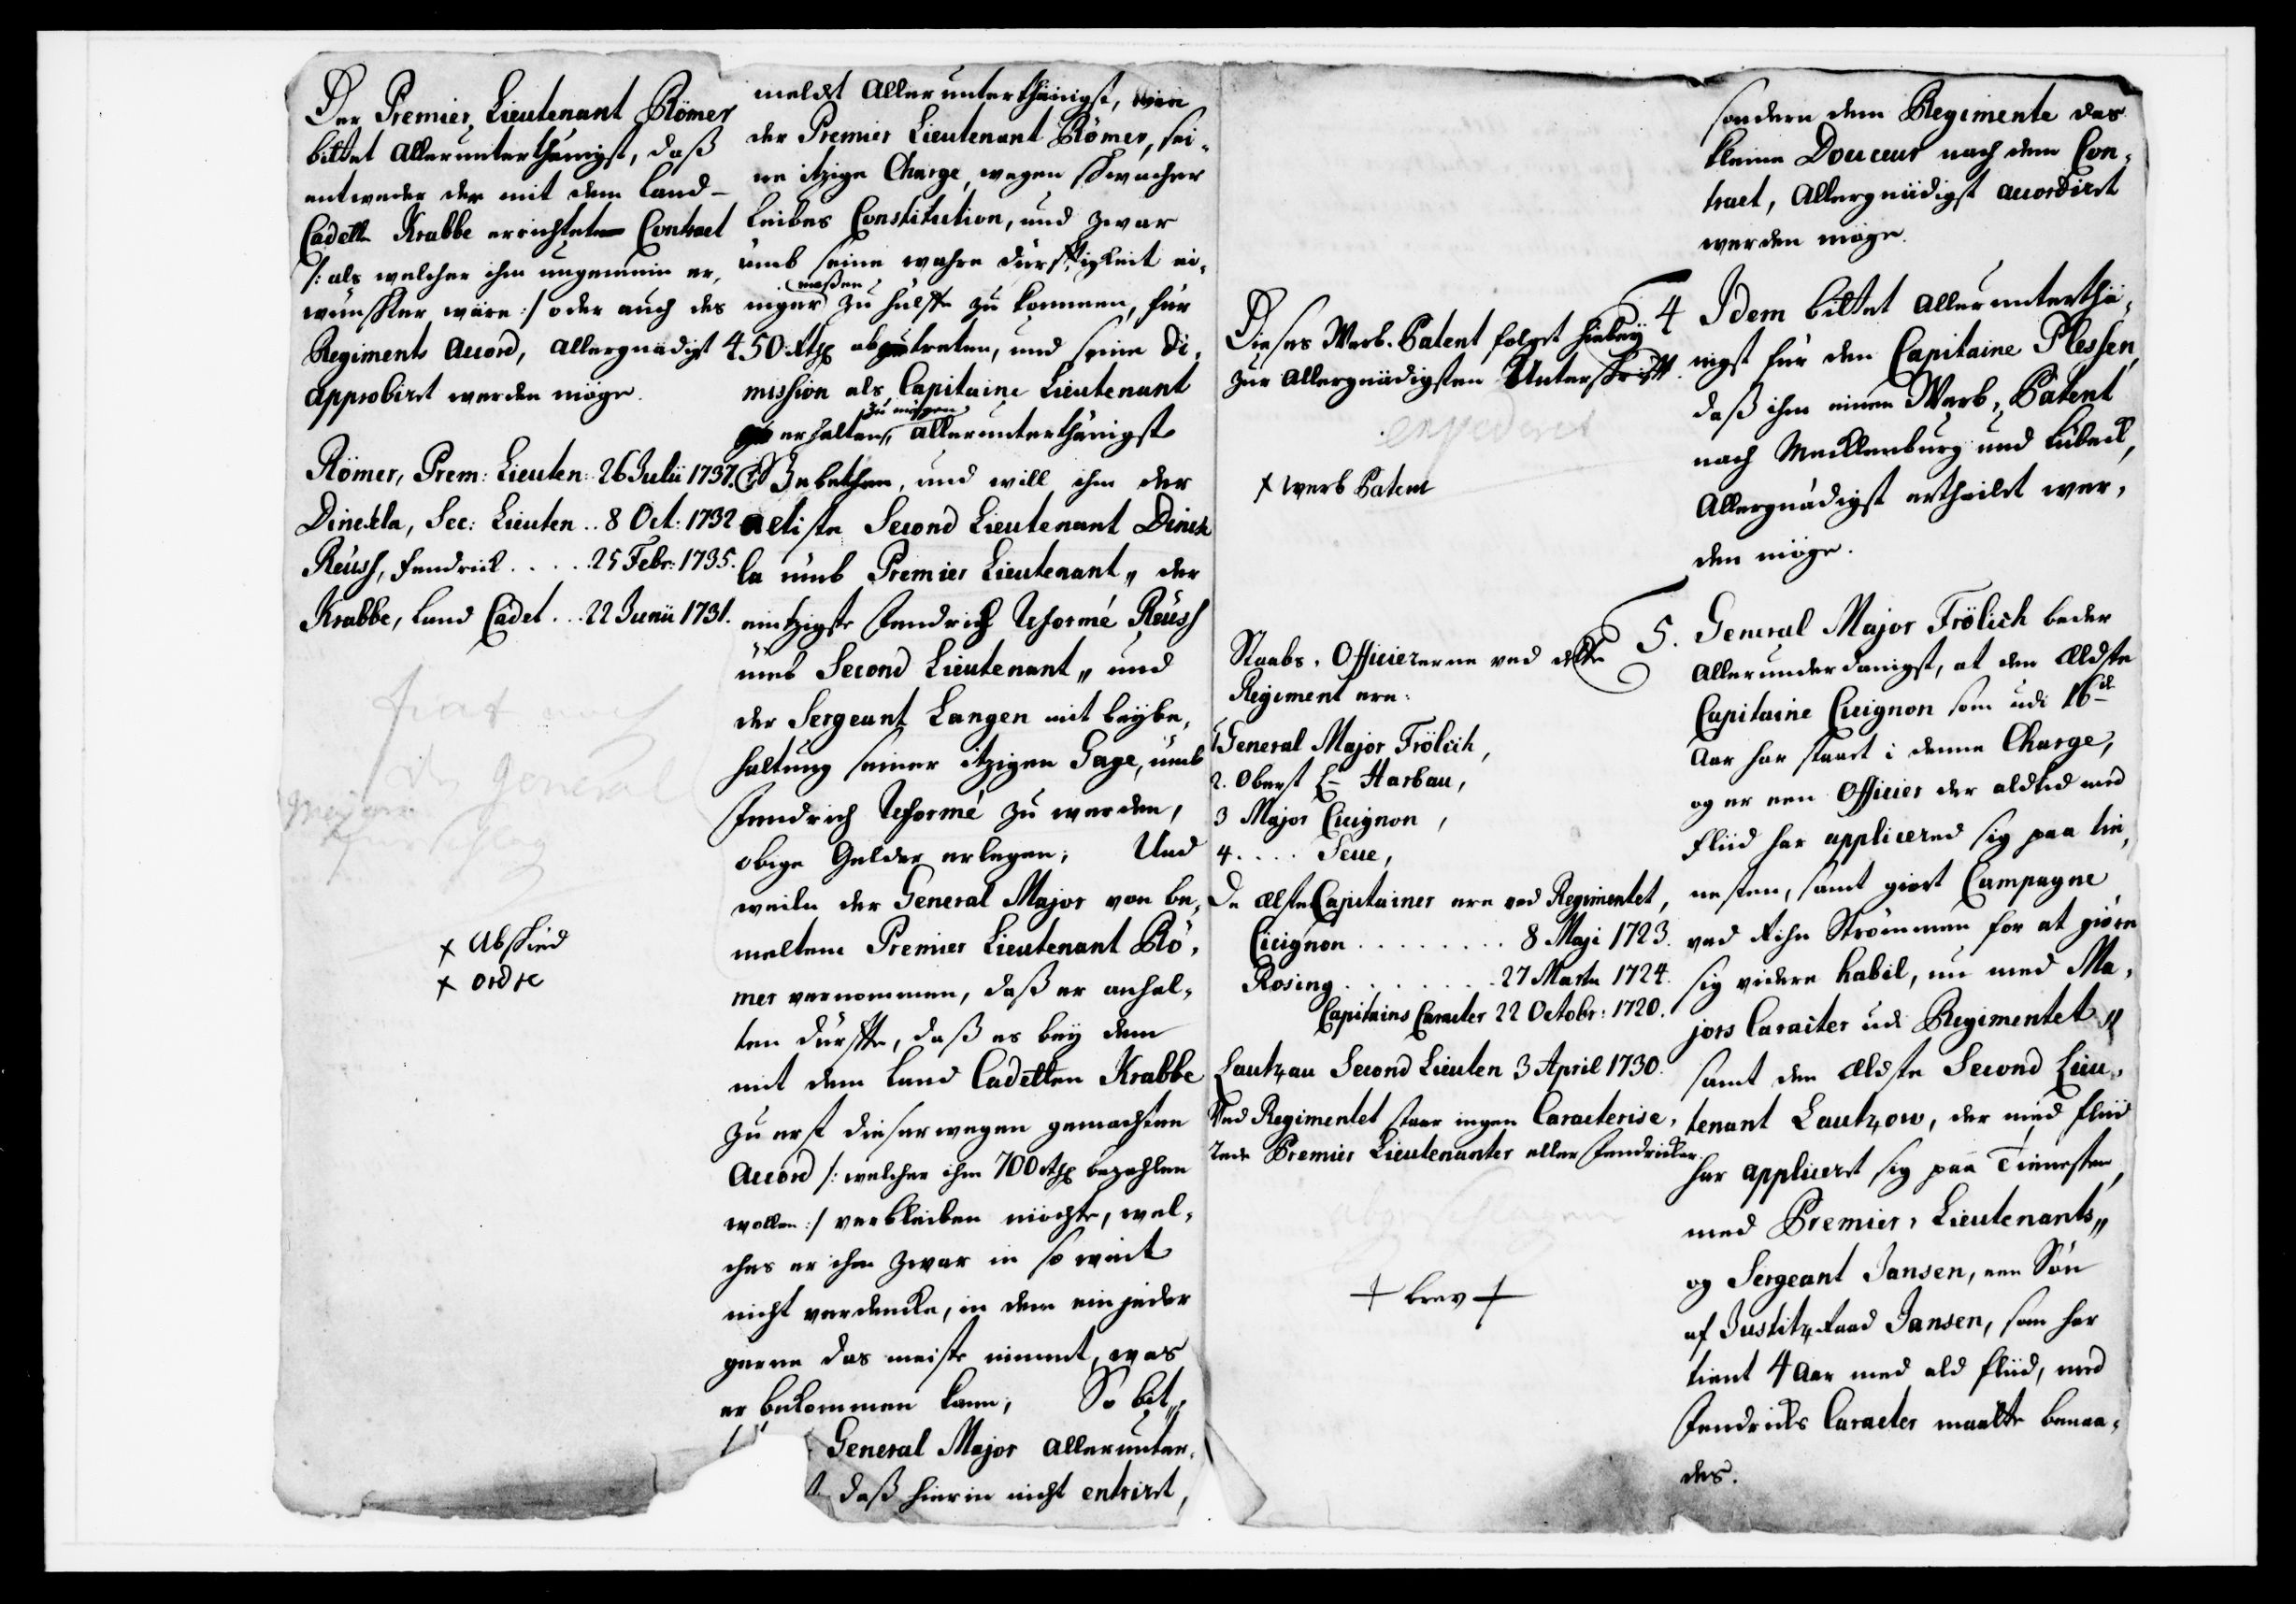 Der Premier Lieutenant Römer
bittet Allerunterthänigst, daß
entweder der mit dem Land-
Cadett Krabbe errichtete Contract
/: als welcher ihm ungemein er,
wünschter wäre :/ oder auch des
Regiments Accord, Allergnädigst
approbirt werden möge.
Römer, Prem: Lieuten: 26 Julii 1737.
Dinckla, Sec: Lieuten .. 8 Oct: 1732
Reuss, Fendrich . . . . . 25 Febr: 1735.
Krabbe, Land Cadet . . . 22 Junii 1731.
fiat nach
des General
Majors
Fürschlag
+ Abschied
+ ordre
meldet Allerunterthänigst, wie
der Premier Lieutenant Römer, sei,
ne itzige Charge, wegen schwacher
Leibes Constitution, und zwar
umb seine wahre Dürfftigkeit ei,
maßen
niger zu hülffe zu kommen, für
450 Rthr abzutreten, und seine Di,
mission als Capitaine Lieutenant
zu mögen
erhalten, Allerunterthänigst
gebethen, und will ihm der
eltiste Second Lieutenant Dinck
la umb Premier Lieutenant,, der
eintzigste Fendrich Reformé Reuss
umb Second Lieutenant,, und
der Sergeant Langen mit beybe,
haltung seiner itzigen Gage, umb
Fendrich Reformé zu werden,
obige Gelder erlegen; Und
weilen der General Major von be,
meltem Premier Lieutenant Rö,
mer vernommen, daß er anhal,
ten dürffte, daß es bey dem
mit dem Land Cadetten Krabbe
zu erst dieserwegen gemachten
Accord /: welcher ihm 700 Rthr bezahlen
wollen :/ verbleiben möchte, wel,
ches er ihm zwar in so weit
nicht verdencke, in dem ein jeder
gerne das meiste nimmt, was
er bekommen kann; So bit,,
General Major Allerunter,
t. daß hierin nicht entrirt,
Dieses Werb. Patent folget hiebey
zur Allergnädigsten Unterschrifft.
expederet
+ Werb Patent
Staabs. Officiererne ved dette
Regiment ere:
1 General Major Frölich,
2. Oberst L- Harbau,
3 Major Cicignon,
4 . . . . Feue,
De ælste Capitainer ere ved Regimentet,
Cicignon . . . . . . . . . 8 Maji 1723.
Rosing . . . . . . . . 27 Martii 1724.
Capitains Caracter 22 Octobr: 1720.
Lautzau Second Lieuten 3 April 1730.
Ved Regimentet staar ingen Caracterise,
rede Premier Lieutenanter eller Fendricker.
+ brev +
sondern dem Regimente das
kleine Douceur nach dem Con,
tract, Allergnädigst accordirt
werden möge.
4 Idem bittet Allerunterthä,
nigst für den Capitaine Plessen,
daß ihm einen Werb, Patent
nach Mecklenburg und Lübeck,
Allergnädigst ertheilet wer,
den möge.
5. General Major Frölich beder
Allerunderdanigst, at den ældste
Capitaine Cicignon som udi 16de
Aar har staaet i denne Charge,
og er een Officier der aldtid med
Fliid har appliceret sig paa tie,
nesten, samt giort Campagne
ved Rihn Strömmen for at giöre
sig videre habil, nu med Ma,
jors Caracter udi Regimentet,,
samt den ældste Second Lieu,
tenant Lautzow, der med Fliid
har appliceret sig paa Tienesten,
med Premier, Lieutenants,,
og Sergeant Jansen, een Sön
af Justitz Raad Jansen, som har
tient 4 Aar med ald Fliid, med
Fendricks Caracter maatte benaa,
des.